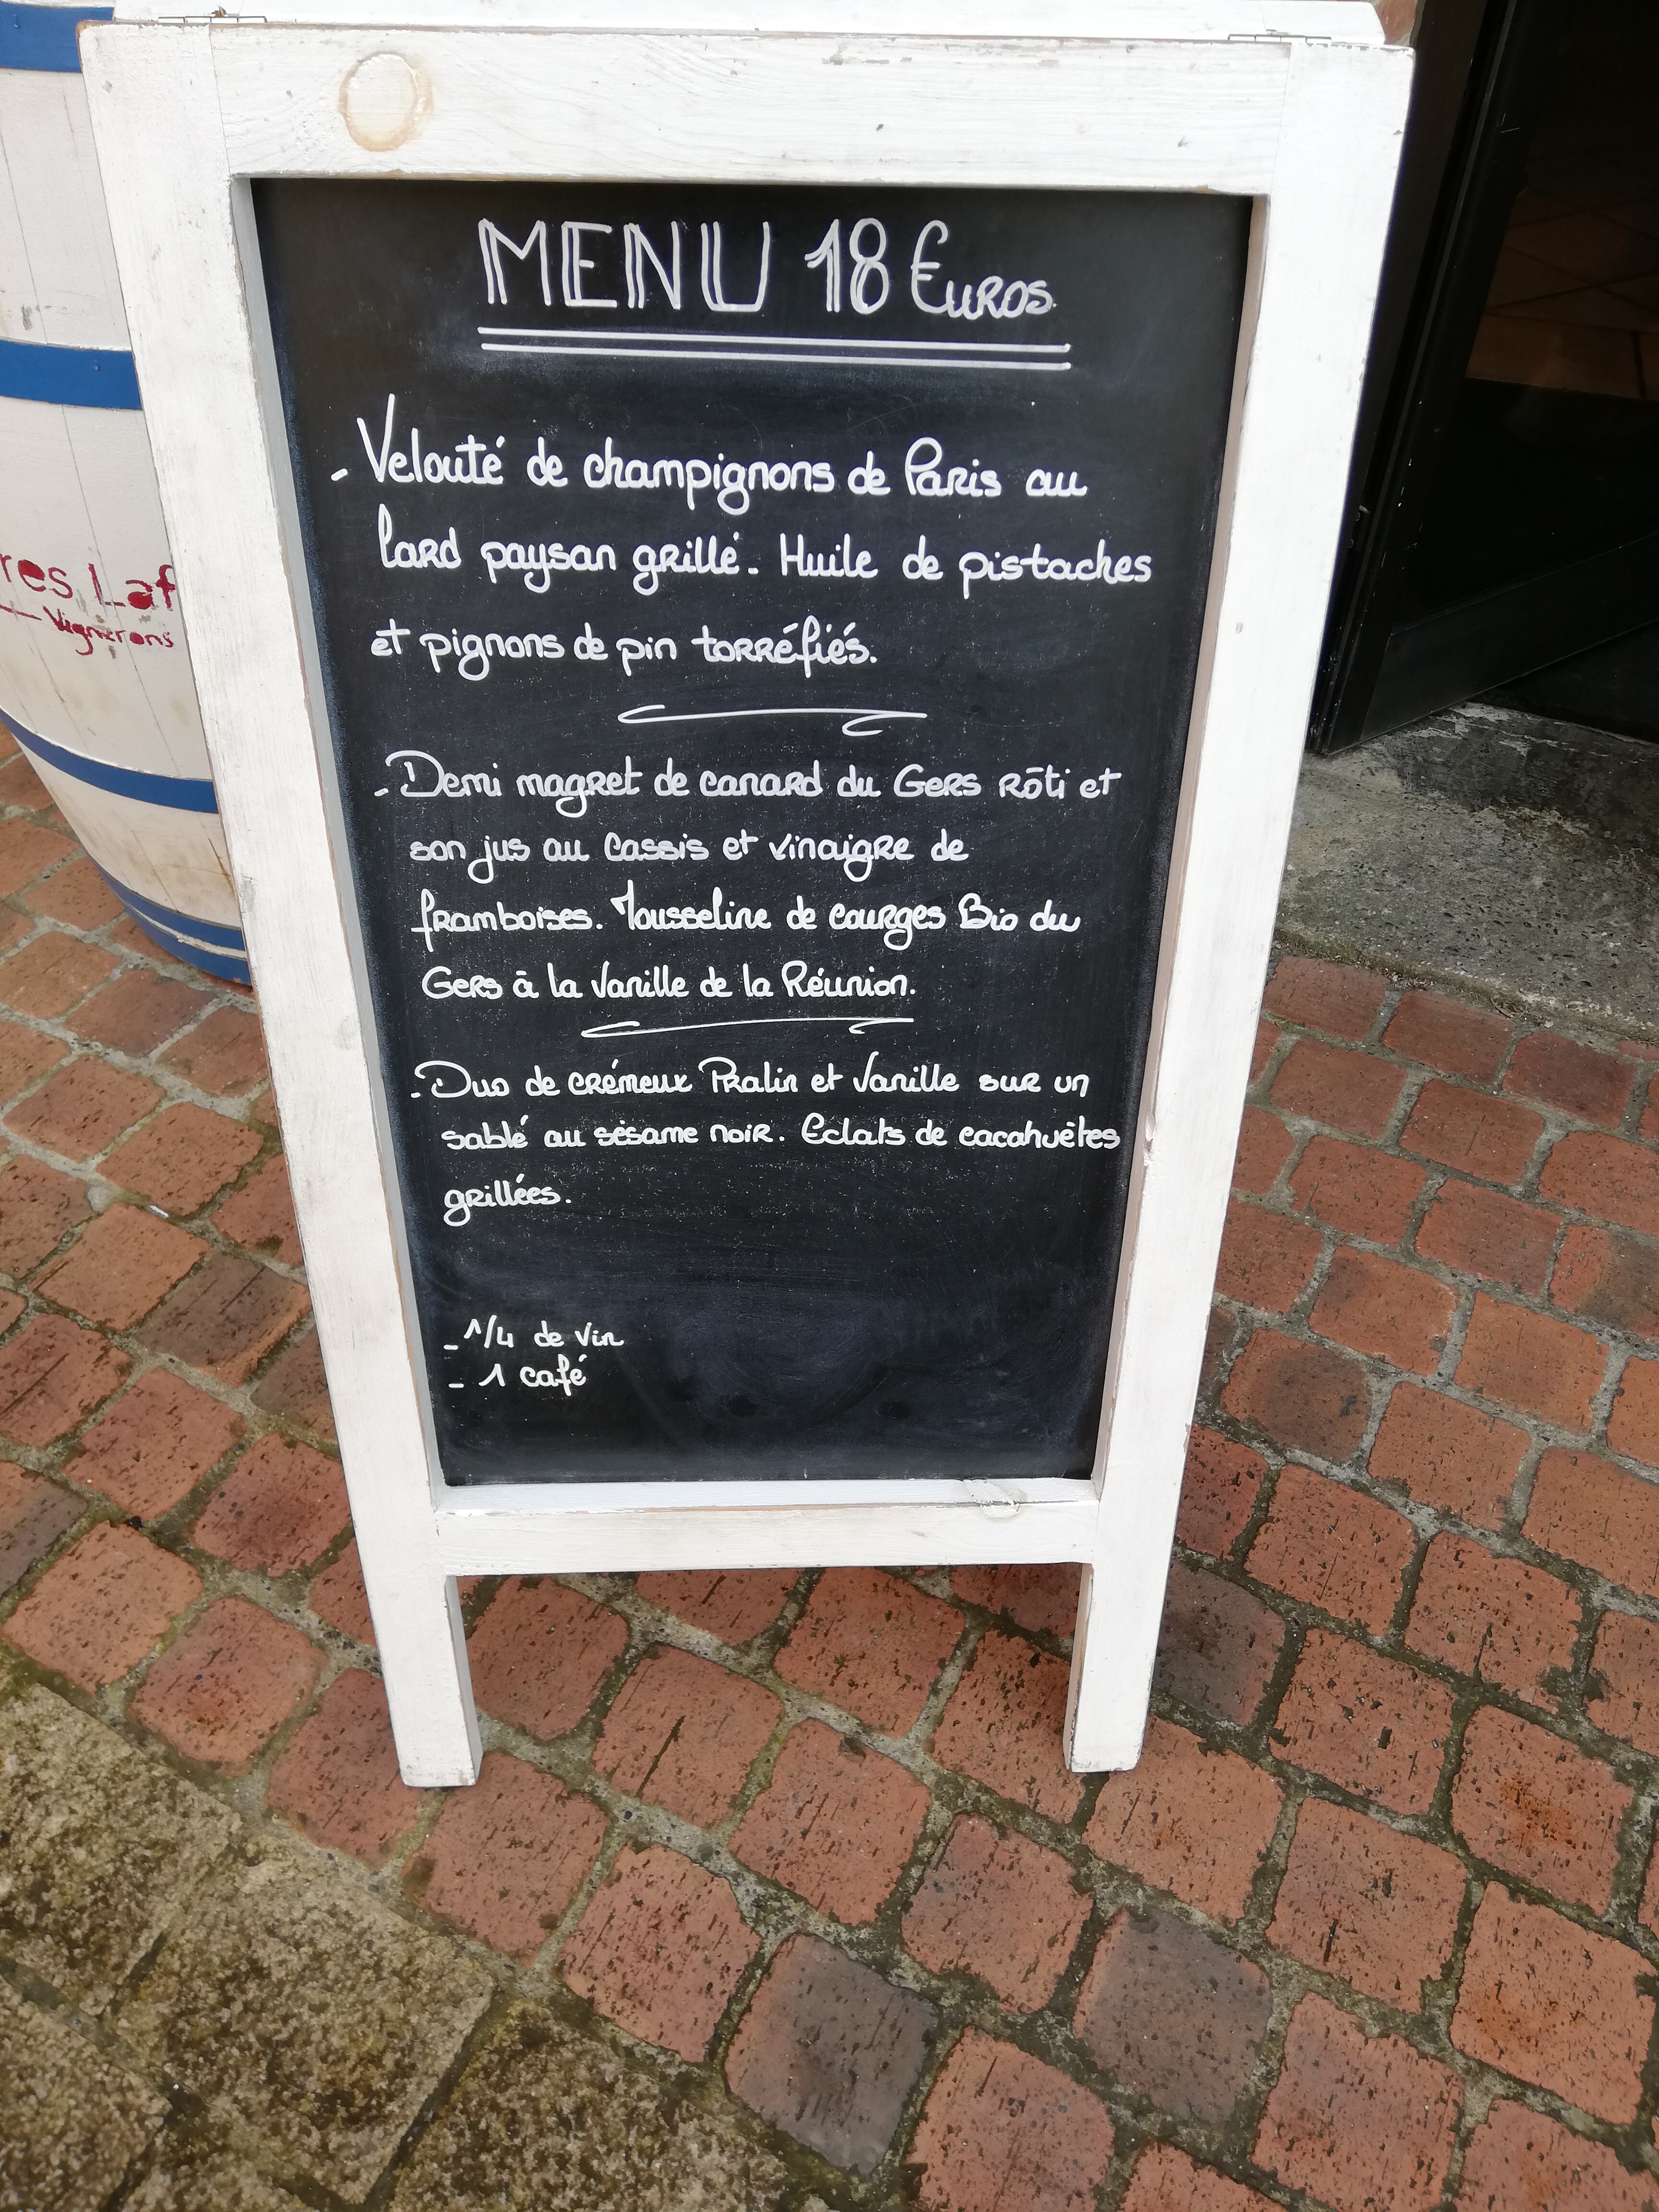 MENU 18 €uros.
- Velouté de champignons de Paris au
lard paysan grillé. Huile de pistaches
et pignons de pin torréfiés.
- Demi magret de canard du Gers rôti et
son jus au Cassis et vinaigre de
framboises. Mousseline de courges Bio du
Gers à la Vanille de la Réunion.
- Duo de crémeux Pralin et Vanille sur un
sablé au sésame noir. Eclats de cacahuètes
grillées.
- 1/4 de Vin
- 1 café
res Laf
Vignerons